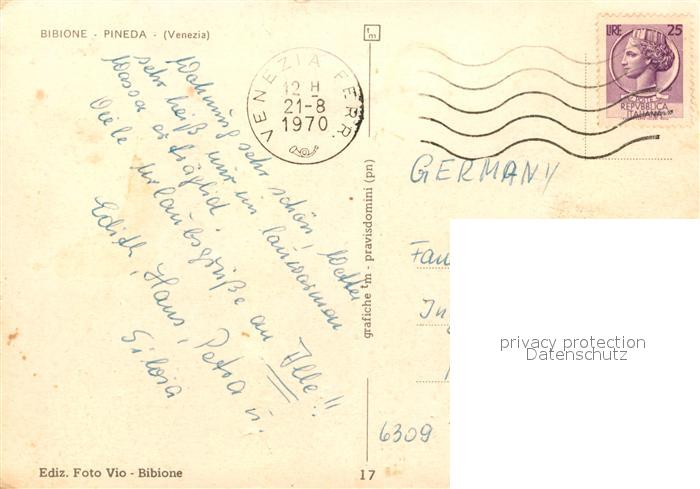 BIBIONE - PINEDA - (Venezia)
tm
VENEZIA FERR.
12 H
21-8
1970
LIRE 25
POSTE
REPVBBLICA
ITALIANA
Wohnung sehr schön, Wetter
sehr heiß nur im lauwarmen
Wasser erträglich.
Viele Urlaubsgrüße an Alle!!
Edith, Hans, Petra u.
Silvia
grafiche tm - pravisdomini (pn)
GERMANY
Fam
privacy protection
Datenschutz
6309
Ediz. Foto Vio - Bibione
17